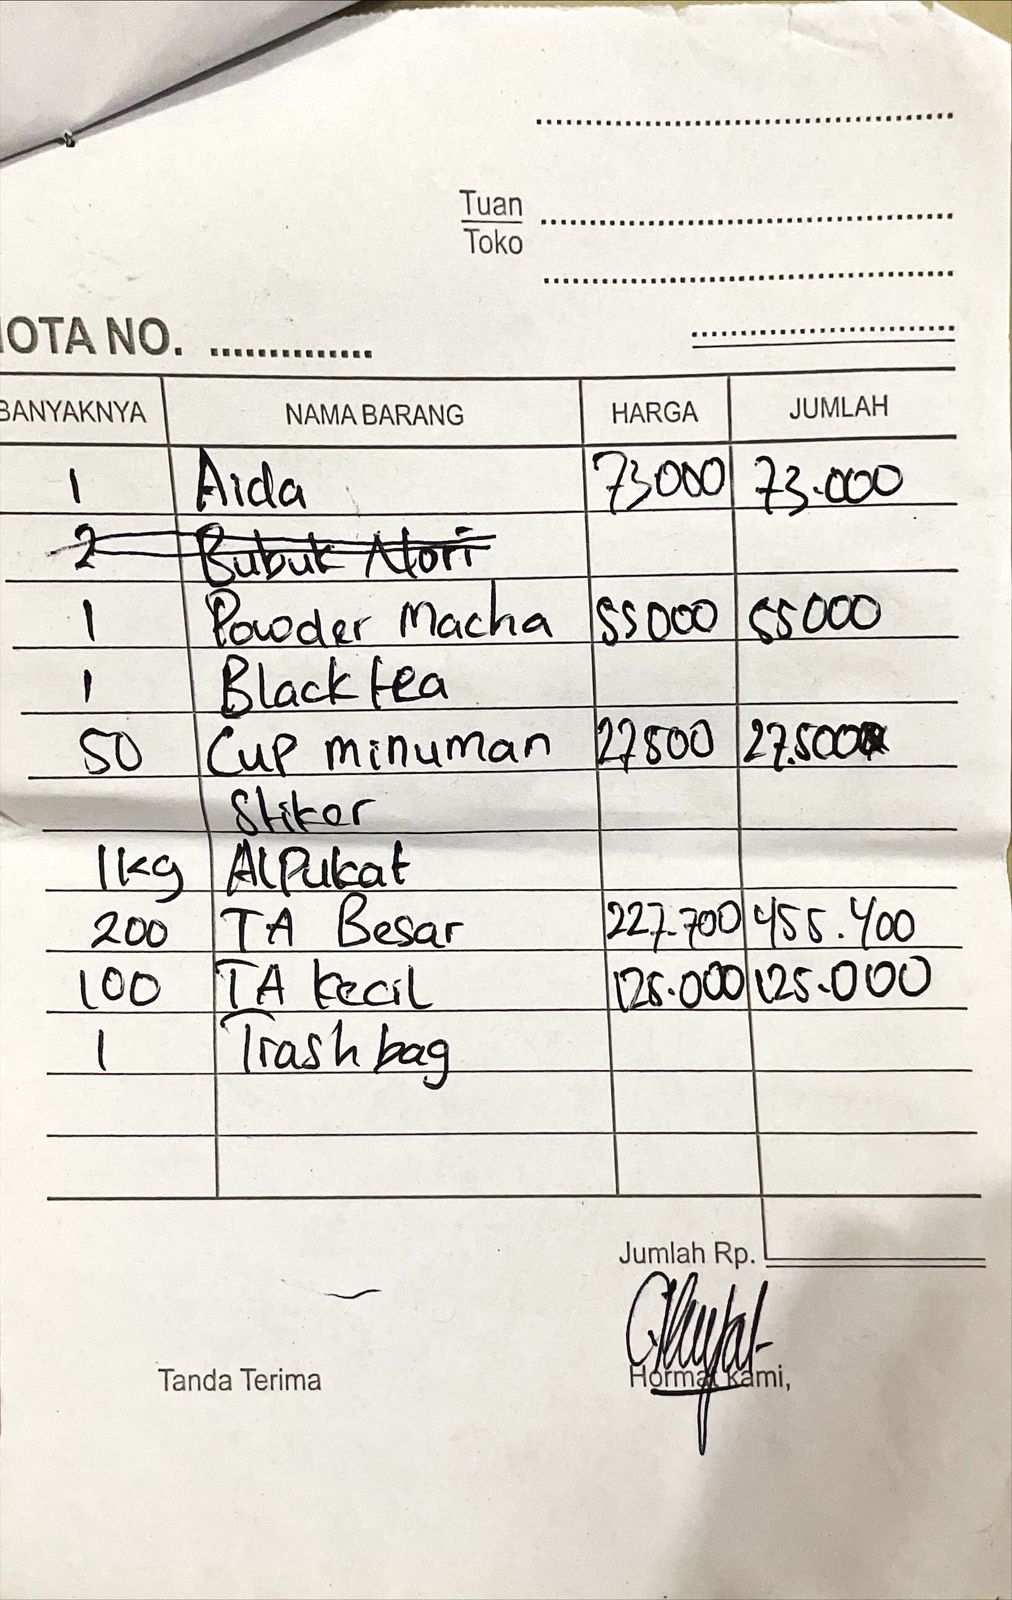 Tuan
Toko
OTA NO.
BANYAKNYA NAMA BARANG HARGA JUMLAH
1 Aida 73000 73.000
2 Bubuk Nori
1 Powder Macha 55000 55000
1 Black tea
50 Cup minuman 27500 27.500
Stiker
1kg Alpukat
200 TA Besar 227.700 455.400
100 TA kecil 125.000 125.000
1 Trash bag
Jumlah Rp.
Tanda Terima Hormat kami,